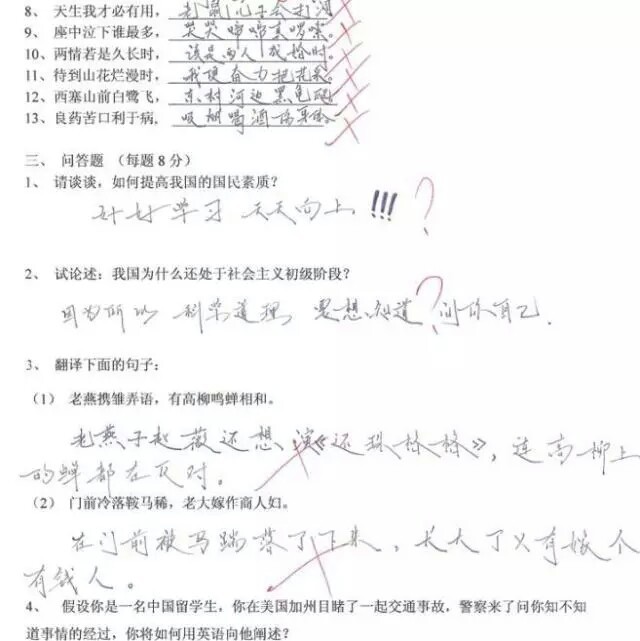 8、 天生我才必有用， 老鼠儿子会打洞
9、 座中泣下谁最多， 哭哭啼啼真啰嗦。
10、两情若是久长时， 该是两人成婚时。
11、待到山花烂漫时， 我便奋力把花采。
12、西塞山前白鹭飞， 东村河边黑龟爬
13、良药苦口利于病， 吸烟喝酒伤身体。
三、 问答题 （每题 8 分）
1、 请谈谈，如何提高我国的国民素质？
好好学习 天天向上 !!! ?
2、 试论述：我国为什么还处于社会主义初级阶段？
因为所以 科学道理 要想知道 ? 问你自己.
3、 翻译下面的句子：
（1） 老燕携雏弄语，有高柳鸣蝉相和。
老燕子赵薇还想演《还珠格格》，连高柳上
的蝉都在反对。
（2） 门前冷落鞍马稀，老大嫁作商人妇。
在门前被马踹落了下来，长大了又有嫁个
有钱人。
4、 假设你是一名中国留学生，你在美国加州目睹了一起交通事故，警察来了问你知不知
道事情的经过，你将如何用英语向他阐述？